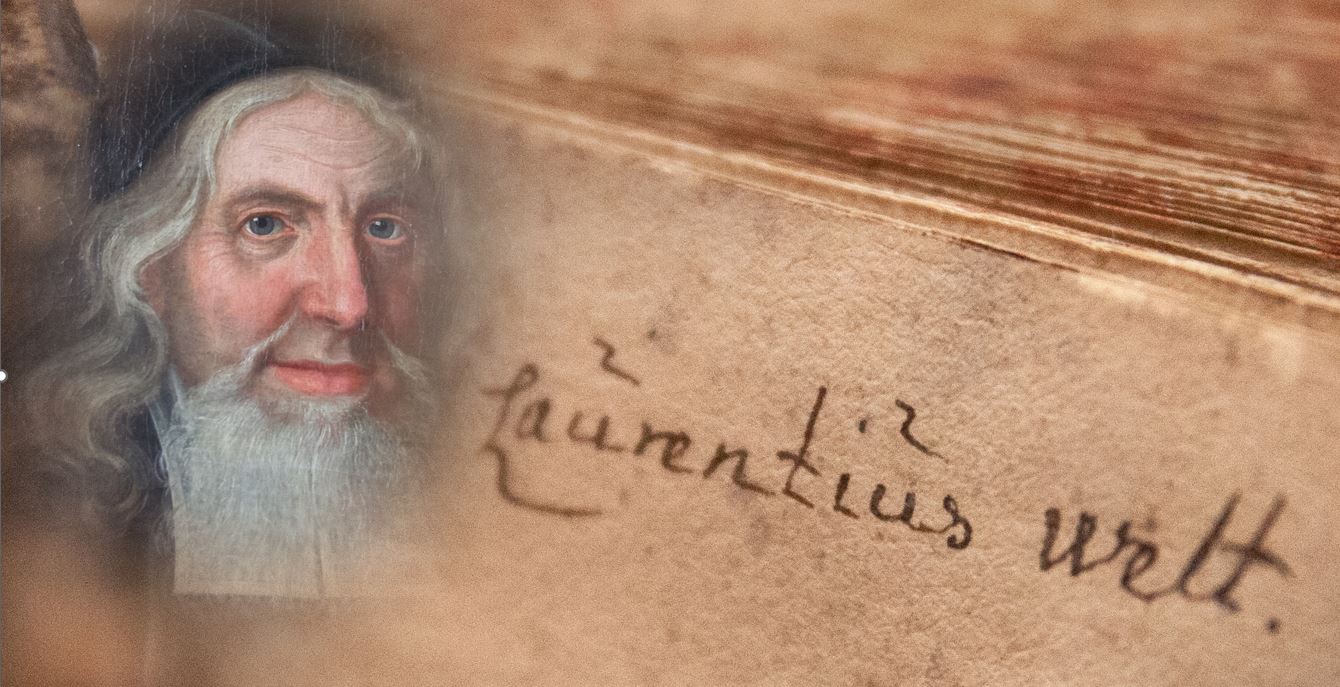 Laurentius Welt.